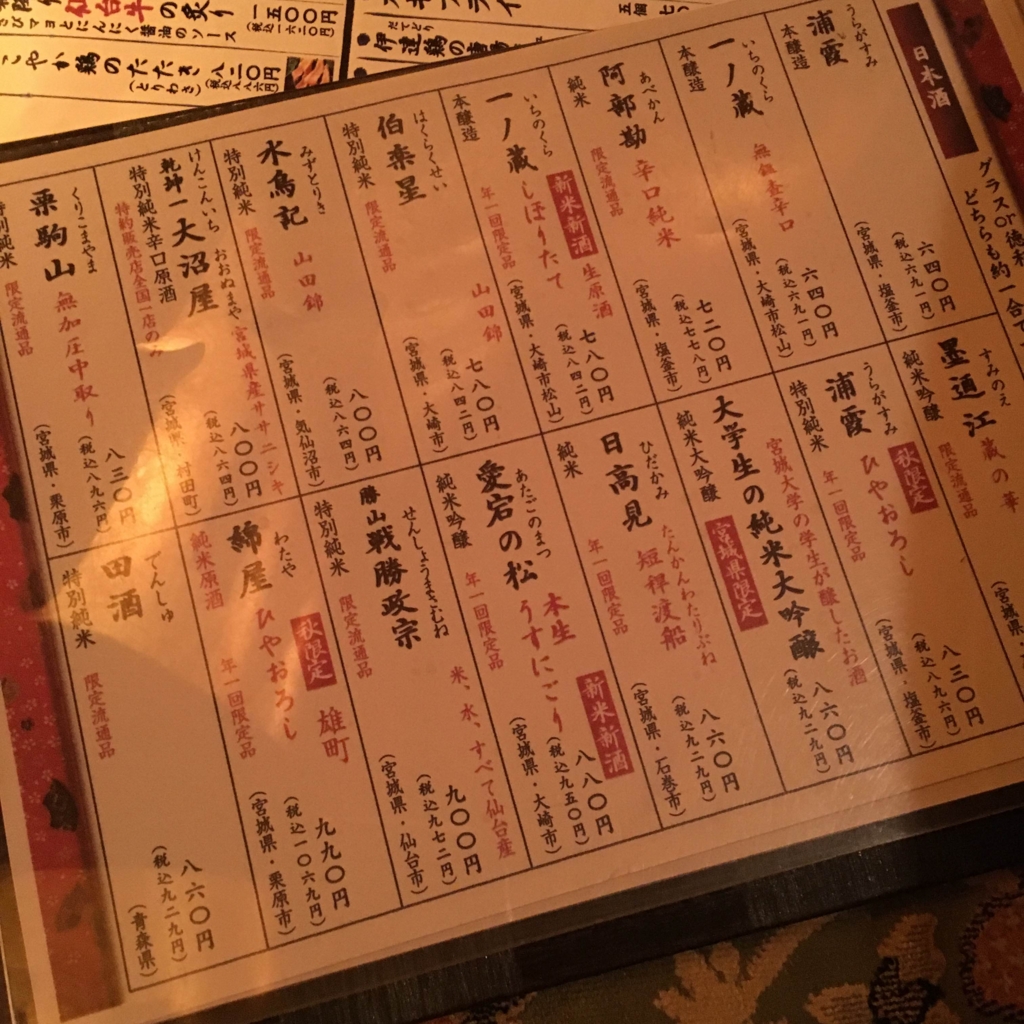 日本酒
グラスor徳利
どちらも約一合で
うらがすみ
浦霞
本醸造
六四〇円
(税込六九一円)
(宮城県・塩釜市)
いちのくら
一ノ蔵
無鑑査辛口
本醸造
六四〇円
(税込六九一円)
(宮城県・大崎市松山)
あべかん
阿部勘
辛口純米
純米
限定流通品
七二〇円
(税込七七八円)
(宮城県・塩釜市)
いちのくら
一ノ蔵
しぼりたて
新米新酒
生原酒
本醸造
年一回限定品
七八〇円
(税込八四二円)
(宮城県・大崎市松山)
はくらくせい
伯楽星
山田錦
特別純米
限定流通品
七八〇円
(税込八四二円)
(宮城県・大崎市)
みずとりき
水鳥記
山田錦
特別純米
限定流通品
八〇〇円
(税込八六四円)
(宮城県・気仙沼市)
けんこんいち
おおぬまや
乾坤一
大沼屋
宮城県産ササニシキ
特別純米辛口原酒
特約販売店全国一店のみ
八〇〇円
(税込八六四円)
(宮城県・村田町)
くりこまやま
栗駒山
無加圧中取り
特別純米
限定流通品
八三〇円
(税込八九六円)
(宮城県・栗原市)
すみのえ
墨廼江
蔵の華
純米吟醸
限定流通品
うらがすみ
浦霞
ひやおろし
秋限定
特別純米
年一回限定品
八三〇円
(税込八九六円)
(宮城県・塩釜市)
大学生の純米大吟醸
純米大吟醸
宮城大学の学生が醸したお酒
宮城県限定
八六〇円
(税込九二九円)
ひだかみ
たんかんわたりぶね
日高見
短稈渡船
純米
年一回限定品
八六〇円
(税込九二九円)
(宮城県・石巻市)
あたごのまつ
愛宕の松
本生
うすにごり
新米新酒
純米吟醸
年一回限定品
八八〇円
(税込九五〇円)
(宮城県・大崎市)
せんしょうまさむね
勝山
戦勝政宗
米、水、すべて仙台産
特別純米
限定流通品
九〇〇円
(税込九七二円)
(宮城県・仙台市)
わたや
綿屋
ひやおろし
秋限定
雄町
純米原酒
年一回限定品
九九〇円
(税込一〇六九円)
(宮城県・栗原市)
でんしゅ
田酒
特別純米
限定流通品
八六〇円
(税込九二九円)
(青森県)
仙台牛の炙り
わさびマヨとにんにく醤油のソース
一五〇〇円
(税込一六二〇円)
鶏のたたき
(とりわさ)
八二〇円
(税込八八六円)
だてどり
伊達鶏の唐
フライ
五個